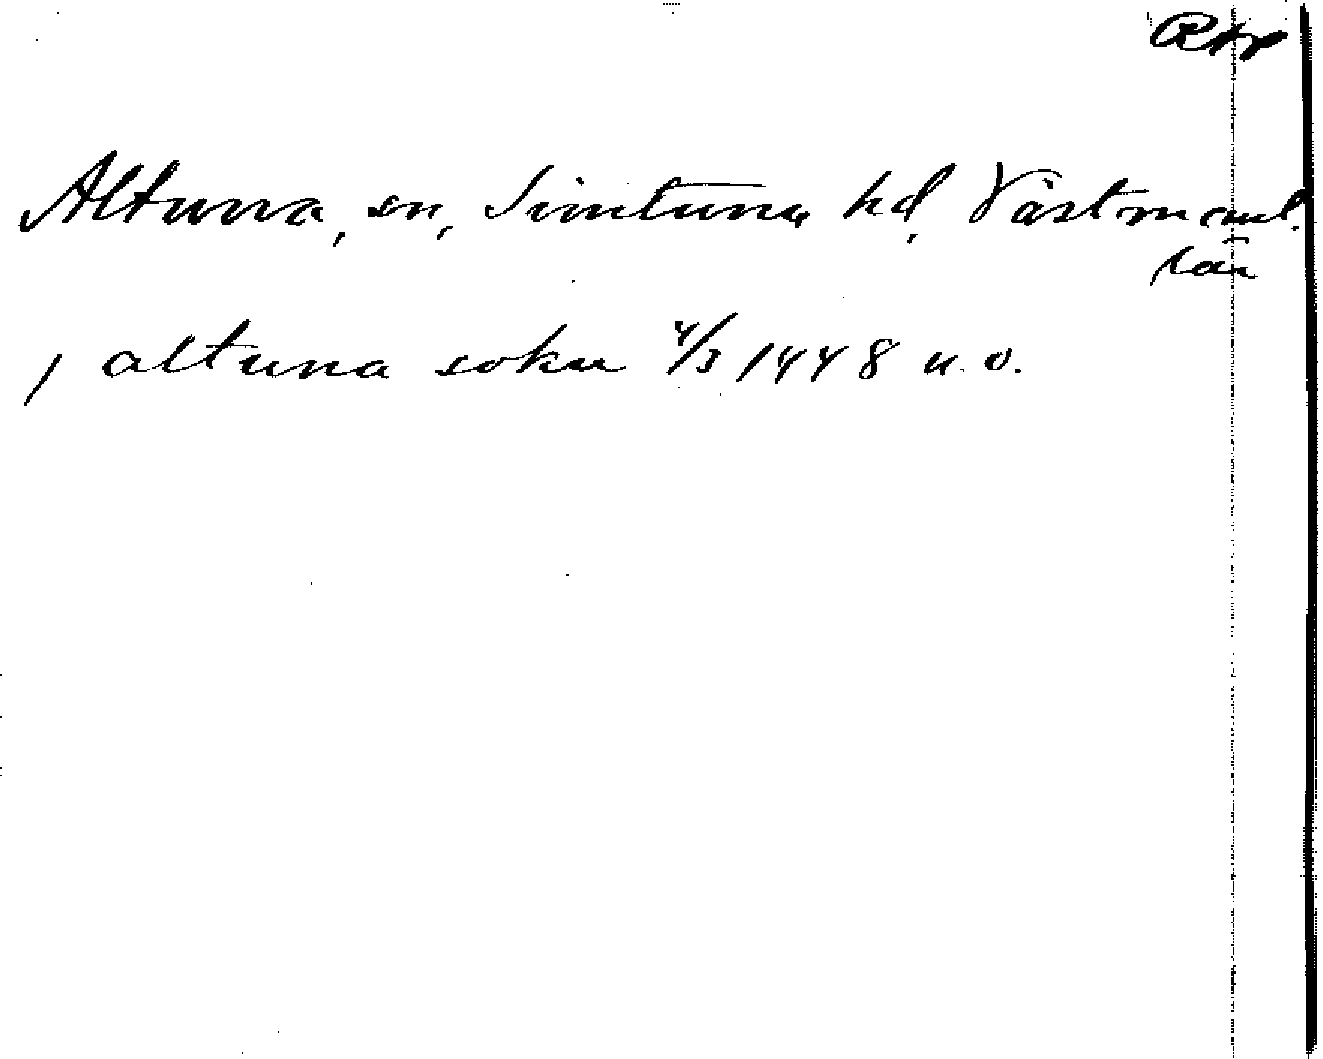 Rap
Altuna, sn, Simtuna hd, Västmanl.
län
, altuna sokn 4/3 1448 u. o.